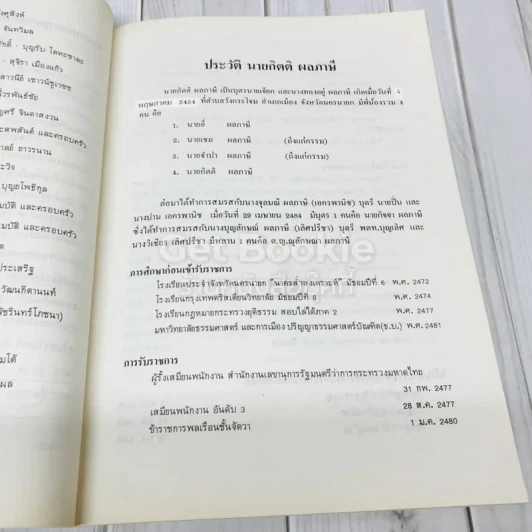 งศุสิงห์
จันทวิมล
ักดิ์ - บุญรับ โลหะชาละ
- สุจิรา เมืองแก้ว
เสาวนีย์ เชาวน์ชูเวชช
ีวรพันธ์ชัย
บัติ และครอบครัว
ประเสริฐ
วัฒนกิตานนท์
ประวัติ นายกิตติ ผลภาษี
นายกิตติ ผลภาษี เป็นบุตรนายเจียก และนางทองอยู่ ผลภาษี เกิดเมื่อวันที่ 5
พฤษภาคม 2454 ที่ตำบลวังกระโจม อำเภอเมือง จังหวัดนครนายก มีพี่น้องรวม 4
คน คือ
1. นายฮี้ ผลภาษี
2. นายเชล ผลภาษี (ถึงแก่กรรม)
3. นายจำปา ผลภาษี (ถึงแก่กรรม)
4. นายกิตติ ผลภาษี
ต่อมาได้ทำการสมรสกับนางจุลมณี ผลภาษี (เอครพานิช) บุตรี นายปิ่น และ
นางปาน เอครพานิช เมื่อวันที่ 29 เมษายน 2484 มีบุตร 1 คนคือ นายกิจจา ผลภาษี
ซึ่งได้ทำการสมรสกับนางบุญลักษณ์ ผลภาษี (เลิศปรีชา) บุตรี พตท.บุญเลิศ และ
นางวิเชียร เลิศปรีชา มีหลาน 1 คนคือ ด.ญ.ณุลักษณา ผลภาษี
Get Bookie
การศึกษาก่อนเข้ารับราชการ
โรงเรียนประจำจังหวัดนครนายก "นาครส่ำสงเคราะห์" มัธยมปีที่ 6 พ.ศ. 2472
โรงเรียนกรุงเทพคริสเตียนวิทยาลัย มัธยมปีที่ 8 พ.ศ. 2474
โรงเรียนกฎหมายกระทรวงยุติธรรม สอบไล่ได้ภาค 2 พ.ศ. 2477
มหาวิทยาลัยธรรมศาสตร์ และการเมือง ปริญญาธรรมศาสตร์บัณฑิต(ธ.บ.) พ.ศ. 2481
การรับราชการ
ผู้รั้งเสมียนพนักงาน สำนักงานเลขานุการรัฐมนตรีว่าการกระทรวงมหาดไทย
31 กพ. 2477
เสมียนพนักงาน อันดับ 3 28 ส.ค. 2477
ข้าราชการพลเรือนชั้นจัตวา 1 ม.ค. 2480